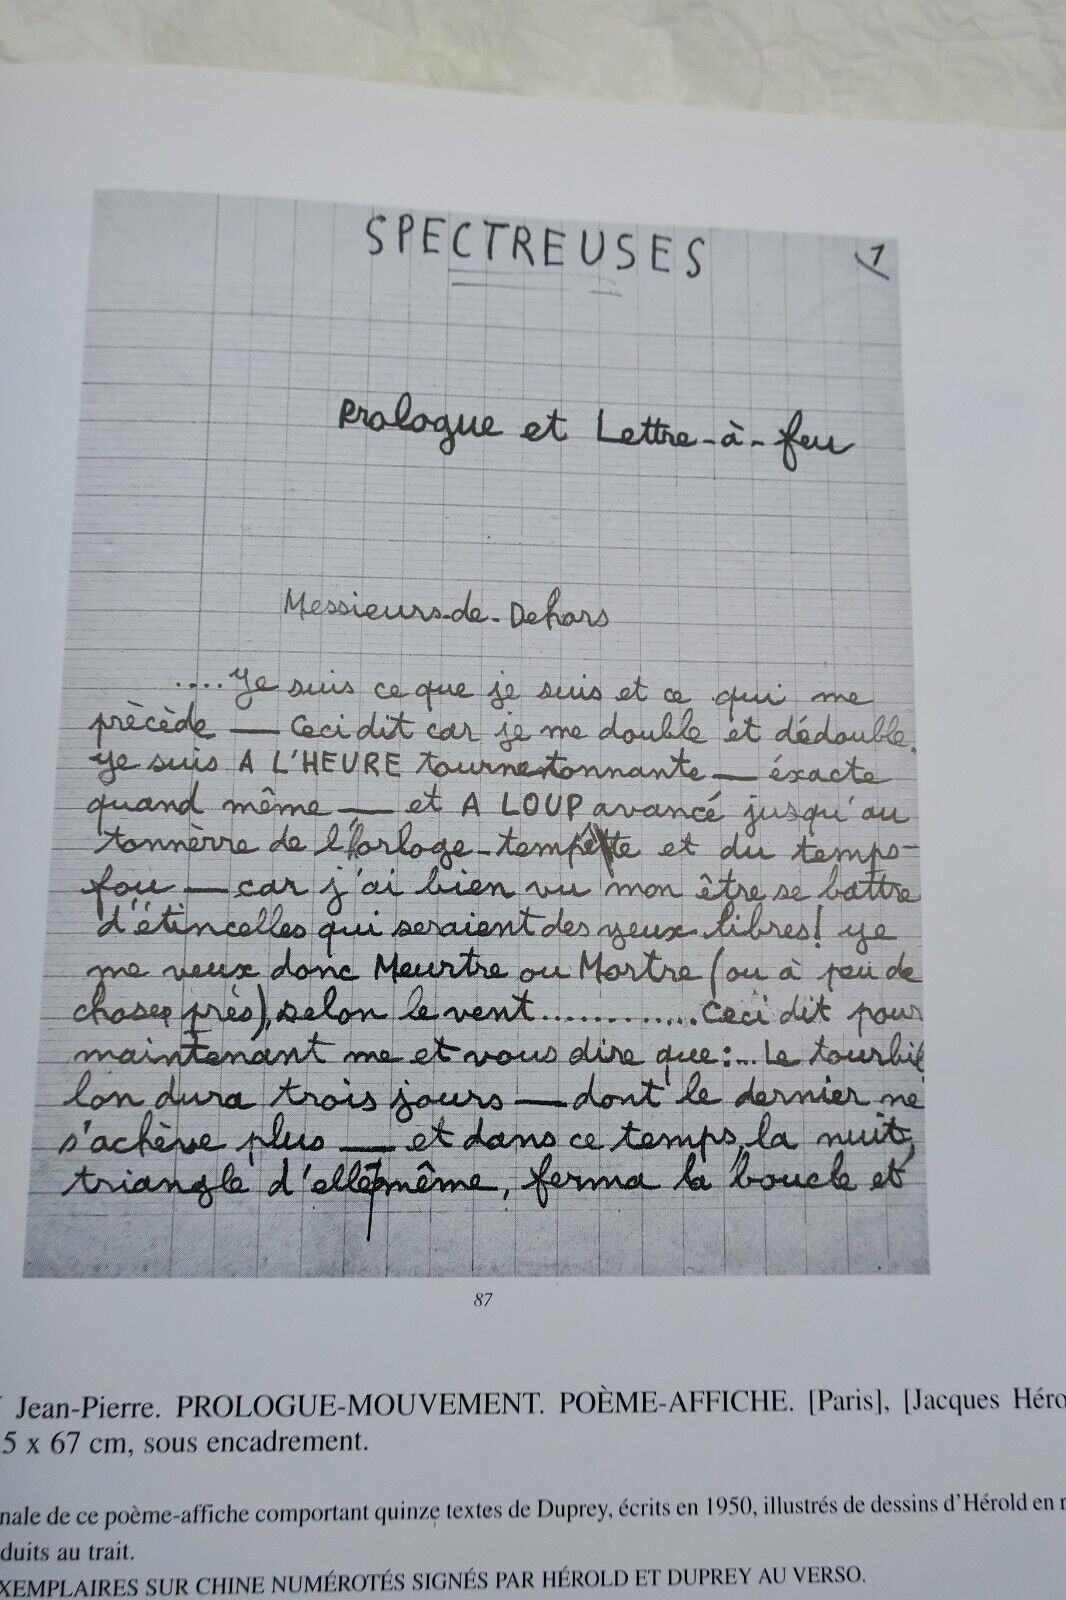 SPECTREUSES
1
Prologue et Lettre-à-feu
Messieurs-de-Dehors
....Je suis ce que je suis et ce qui me
précède — Ceci dit car je me double et dédouble.
Je suis A L'HEURE tournetonnante — éxacte
quand même — et A LOUP avancé jusqu'au
tonnèrre de l'orloge-tempête et du temps-
fou — car j'ai bien vu mon être se battre
d'étincelles qui seraient des yeux libres! Je
me veux donc Meurtre ou Mortre (ou à peu de
choses près), selon le vent............Ceci dit pour
maintenant me et vous dire que:...Le tourbil
lon dura trois jours — dont le dernier ne
s'achève plus — et dans ce temps, la nuit,
triangle d'elle même, ferma la boucle et
87
Jean-Pierre. PROLOGUE-MOUVEMENT. POÈME-AFFICHE. [Paris], [Jacques Héro
5 x 67 cm, sous encadrement.
nale de ce poème-affiche comportant quinze textes de Duprey, écrits en 1950, illustrés de dessins d'Hérold en
duits au trait.
XEMPLAIRES SUR CHINE NUMÉROTÉS SIGNÉS PAR HÉROLD ET DUPREY AU VERSO.